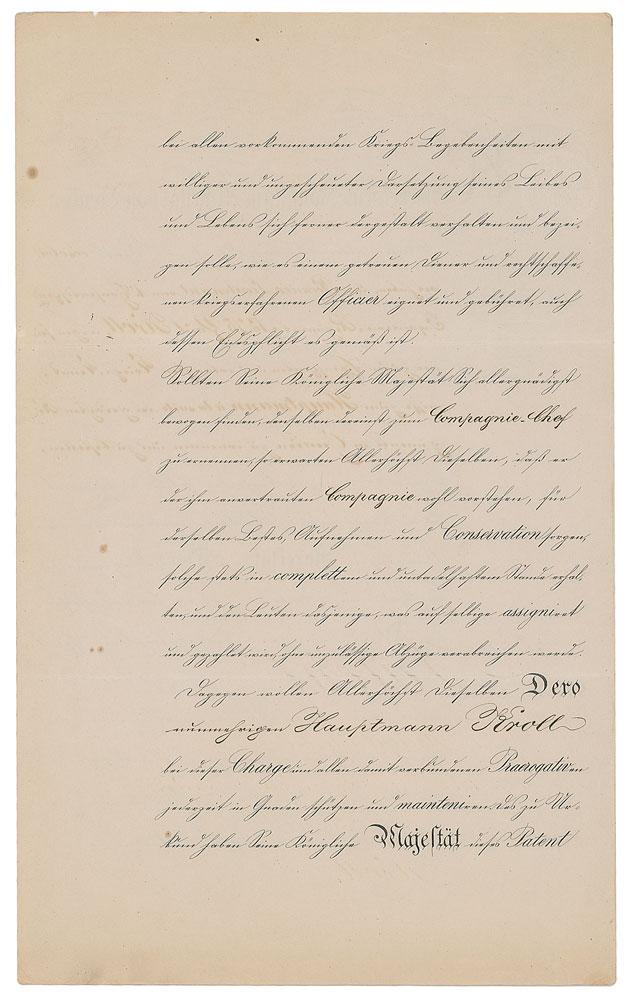 bei allen vorkommenden Kriegs-Begebenheiten mit
williger und ungescheueter Darsetzung seines Leibes
und Lebens sich ferner dergestalt verhalten und bezei-
gen solle, wie es einem getreuen Diener und rechtschaffe-
nen kriegserfahrenen Officier eignet und gebühret, auch
dessen Eidespflicht es gemäß ist.
Sollten Seine Königliche Majestät Sich allergnädigst
bewogen finden, denselben dereinst zum Compagnie-Chef
zu ernennen, so erwarten Allerhöchst Dieselben, daß er
der ihm anvertrauten Compagnie wohl vorstehen, für
derselben Bestes, Aufnehmen und Conservation sorgen,
solche stets in complettem und untadelhaftem Stande erhal-
ten, und den Leuten dasjenige, was auf selbige assigniret
und gezahlet wird, ohne unzulässige Abzüge verabreichen werde.
Dagegen wollen Allerhöchst Dieselben Dero
nunmehrigen Hauptmann Kroll
bei dieser Charge und allen damit verbundenen Praerogativen
jederzeit in Gnaden schützen und mainteniren. Des zu Ur-
kund haben Seine Königliche Majestät dieses Patent